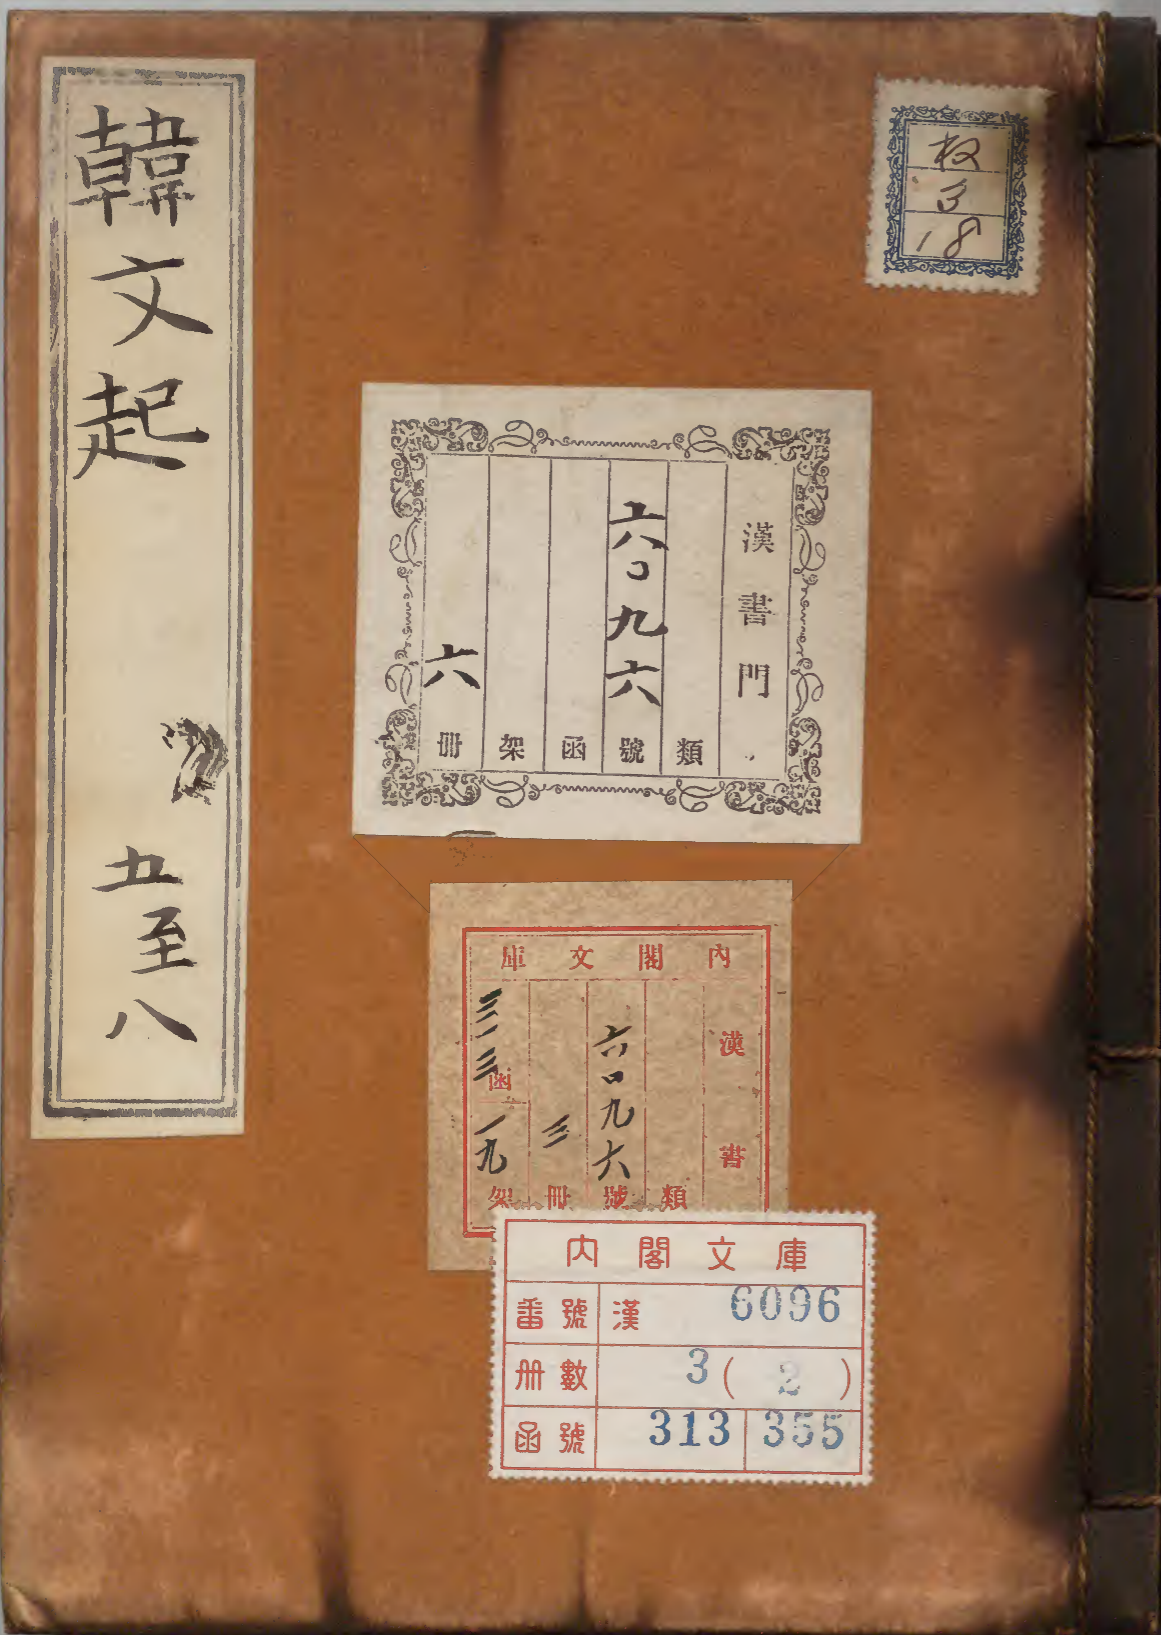 韓文起 五至八
枚
18
漢書門
類
六〇九六號
函
架
六冊
內閣文庫
漢書
類
六〇九六號
三冊
三一三函
一九架
內閣文庫
番號 漢 6096
册數 3 ( 2 )
函號 313 355